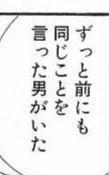 ずっと前にも
同じことを
言った男がいた